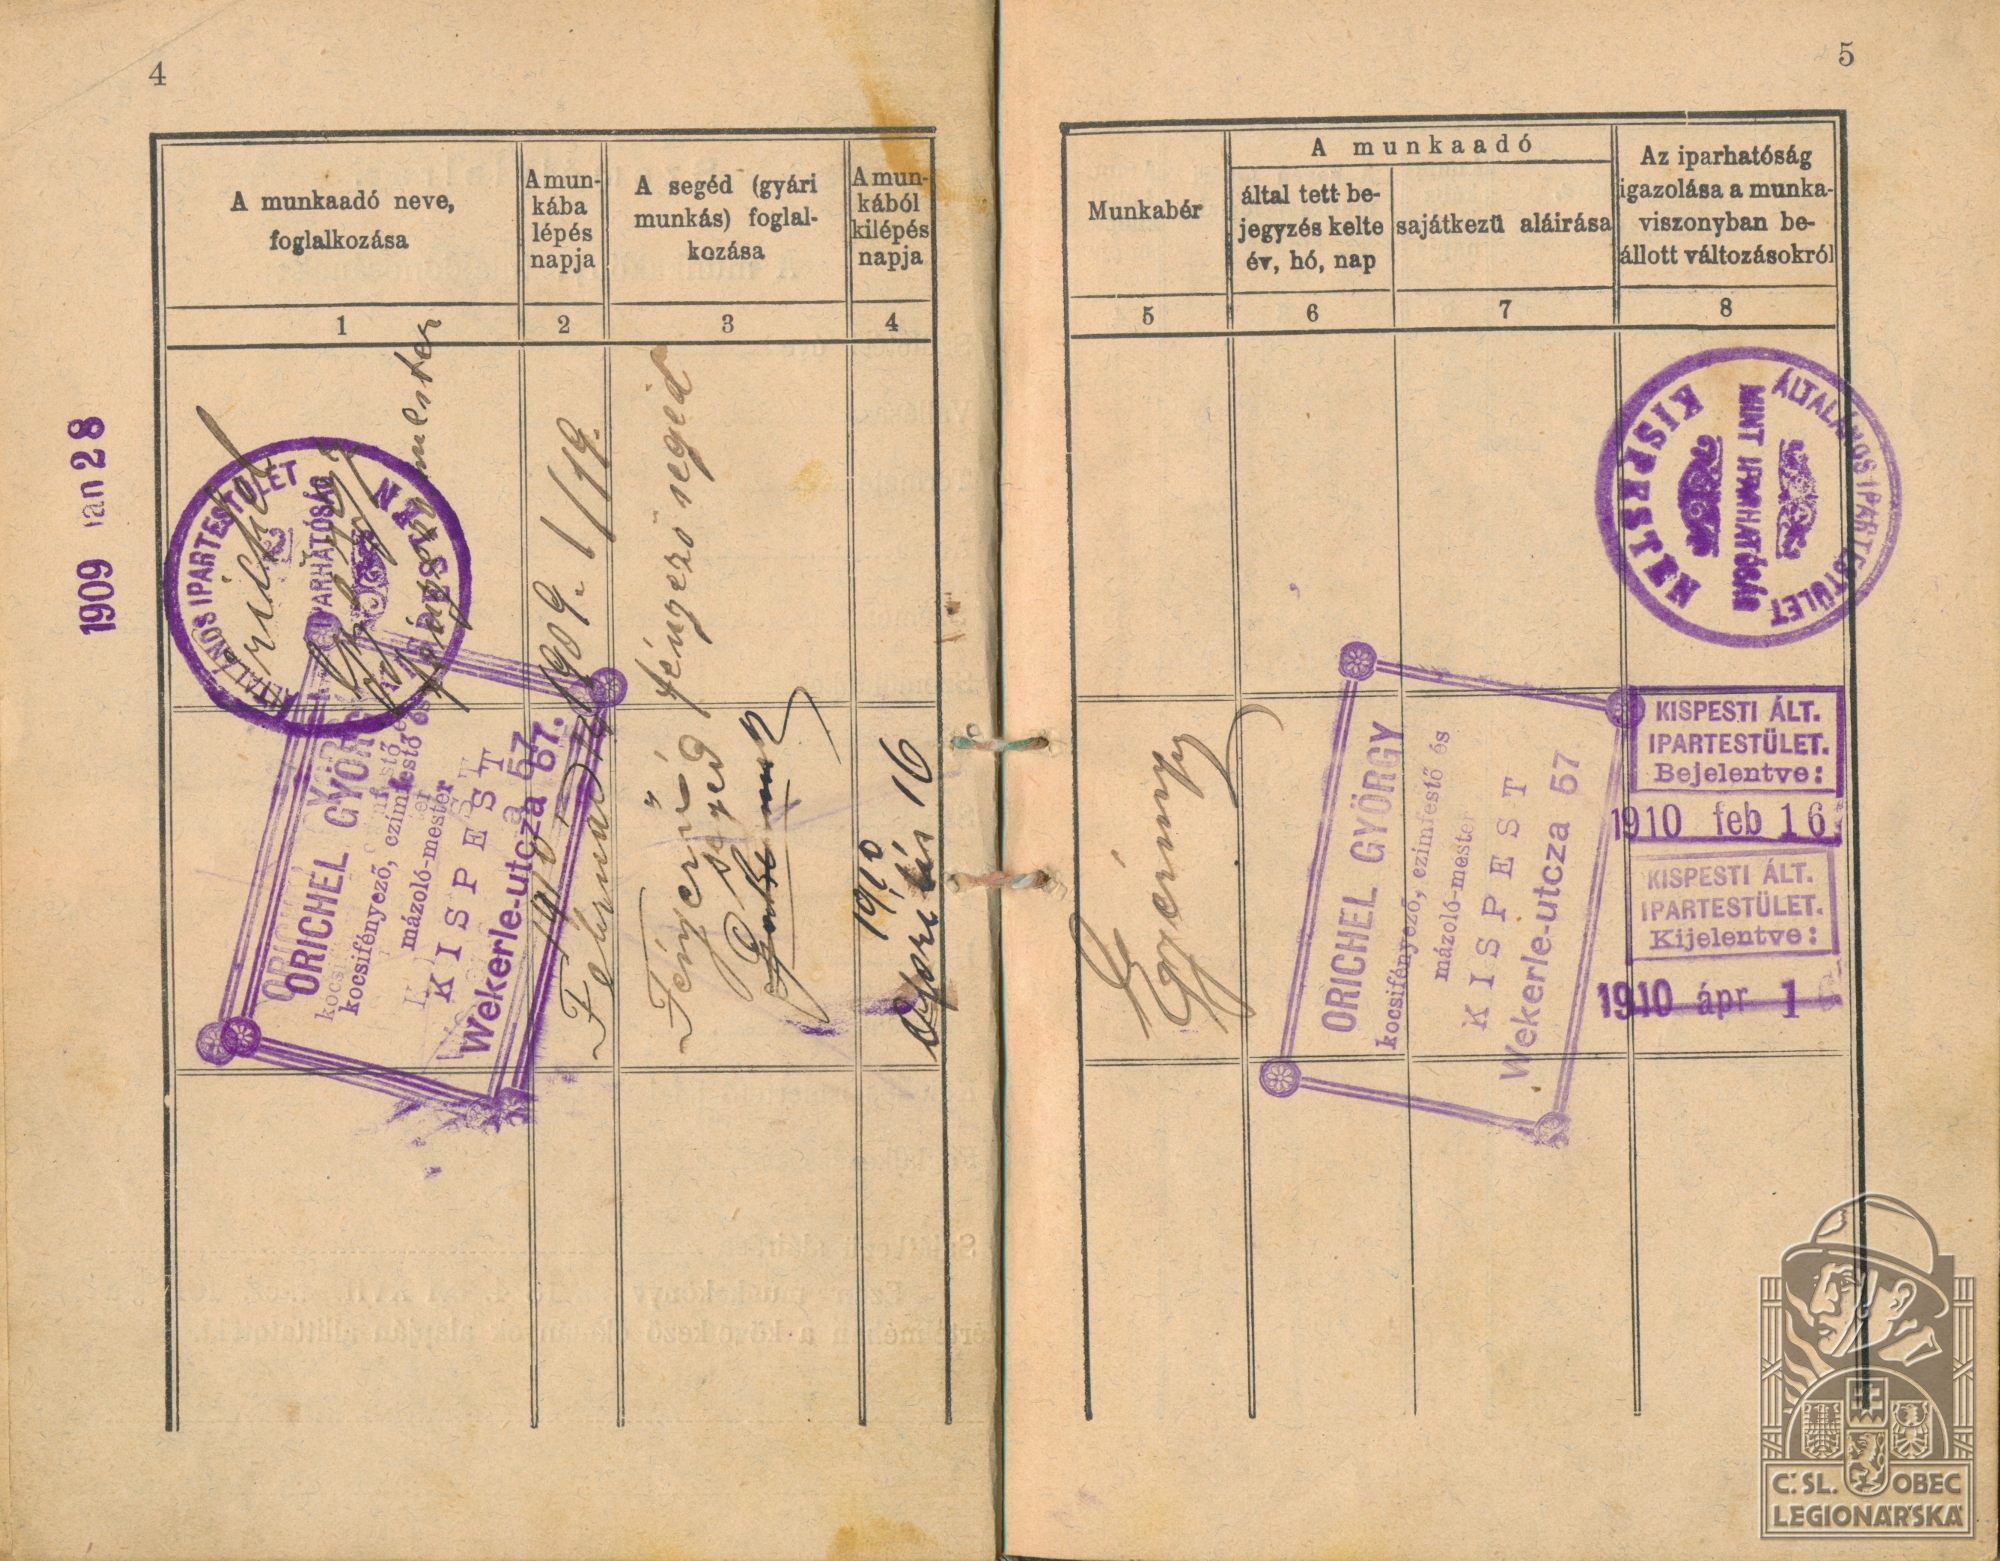 4
A munkaadó neve,
foglalkozása
A mun-
kába
lépés
napja
A segéd (gyári
munkás) foglal-
kozása
A mun-
kából
kilépés
napja
1
2
3
4
1909 jan 28
ÁLTALÁNOS IPARTESTÜLET
IPARHATÓSÁG
KISPESTEN
Orichel
György
mester
1909. 1/19.
fényező segéd
ORICHEL GYÖRGY
kocsifényező, czimfestő és
mázoló-mester
KISPEST
Wekerle-utcza 57.
1910
Február
Fényező
segéd
1910
április 16
5
Munkabér
A munkaadó
által tett be-
jegyzés kelte
év, hó, nap
sajátkezű aláírása
Az iparhatóság
igazolása a munka-
viszonyban be-
állott változásokról
5
6
7
8
ÁLTALÁNOS IPARTESTÜLET
MINT IPARHATÓSÁG
KISPESTEN
ORICHEL GYÖRGY
kocsifényező, czimfestő és
mázoló-mester
KISPEST
Wekerle-utcza 57
KISPESTI ÁLT.
IPARTESTÜLET.
Bejelentve:
1910 feb 16
KISPESTI ÁLT.
IPARTESTÜLET.
Kijelentve:
1910 ápr 16
Č.SL. OBEC
LEGIONÁŘSKÁ